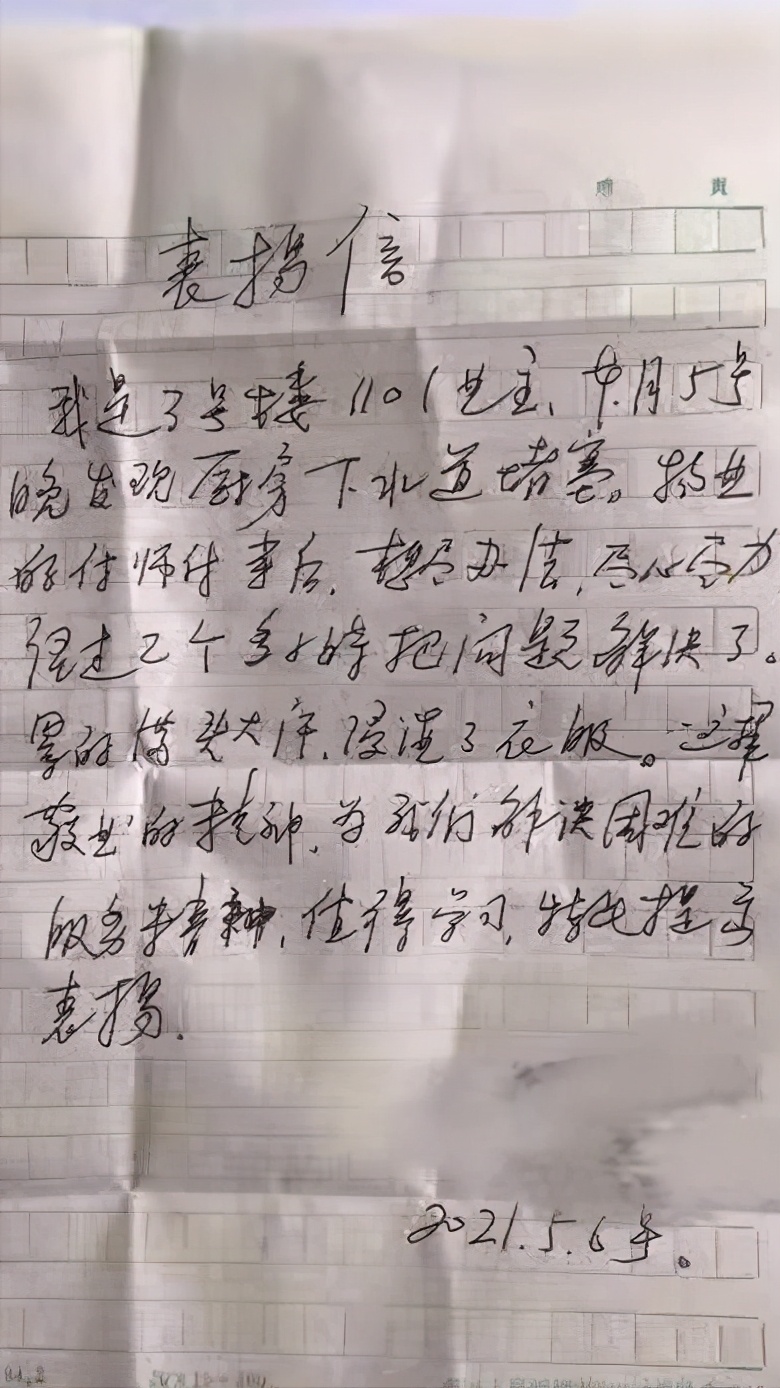 表扬信
我是3号楼1101业主、5月5号
晚发现厨房下水道堵塞。物业
的付师付来后,想尽办法,尽心尽力
经过2个多小时把问题解决了。
累的满头大汗,浸湿了衣服。这种
敬业的精神,为我们解决困难的
服务精神,值得学习,特此提出
表扬.
2021.5.6号。